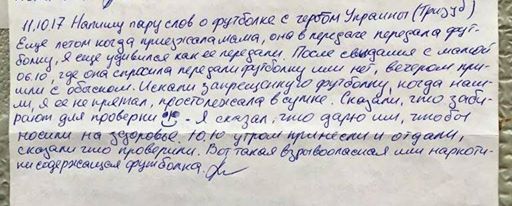 11.10.17 Напишу пару слов о футболке с гербом Украины (Тризуб)
Ещё летом когда приезжала мама, она в передаче передала фут-
болку, я ещё удивился как ее передали. После свидания с мамой
06.10, где она спросила передали футболку или нет, вечером при-
шли с обыском. Искали запрещенную футболку, когда наш-
ли, я ее не прятал, просто лежала в сумке. Сказали, что заби-
рают для проверки - Я сказал, что дарю им, чтобы
носили на здоровье. 10.10 утром принесли и отдали,
сказали что проверили. Вот такая взрывоопасная или наркоти-
ки содержащая футболка.